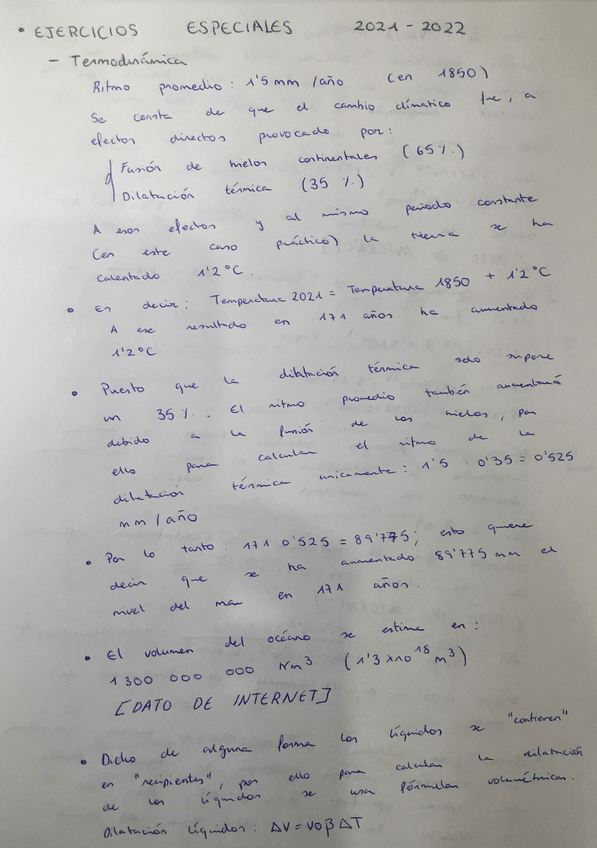 • EJERCICIOS ESPECIALES 2021-2022
- Termodinámica
Ritmo promedio: 1'5 mm /año (en 1850)
Se consta de que el cambio climatico fue, a
efectos directos provocado por:
Fusión de hielos continentales (65%)
Dilatación térmica (35 %)
A esos efectos y al mismo periodo constante
(en este caso práctico) la tierra se ha
calentado 1'2°C.
• Es decir: Temperatura 2021 = Temperatura 1850 + 1'2°C
A ese resultado en 171 años ha aumentado
1'2°C
• Puesto que la dilatación térmica solo supone
un 35%. El ritmo promedio también aumentará
debido a la fusión de los hielos, por
ello para calcular el ritmo de la
dilatacion térmica unicamente: 1'5 · 0'35 = 0'525
mm/año
• Por lo tanto: 171 · 0'525 = 89'775; esto quiere
decir que se ha aumentado 89'775 mm el
nivel del mar en 171 años.
• El volumen del océano se estima en:
1 300 000 000 Km³ (1'3 x10¹⁸ m³)
[DATO DE INTERNET]
• Dicho de alguna forma los líquidos se "contienen"
en "recipientes", por ello para calcular la dilatación
de los líquidos se usa fórmulas volumétricas.
Dilatación líquidos: ΔV = V0 β ΔT